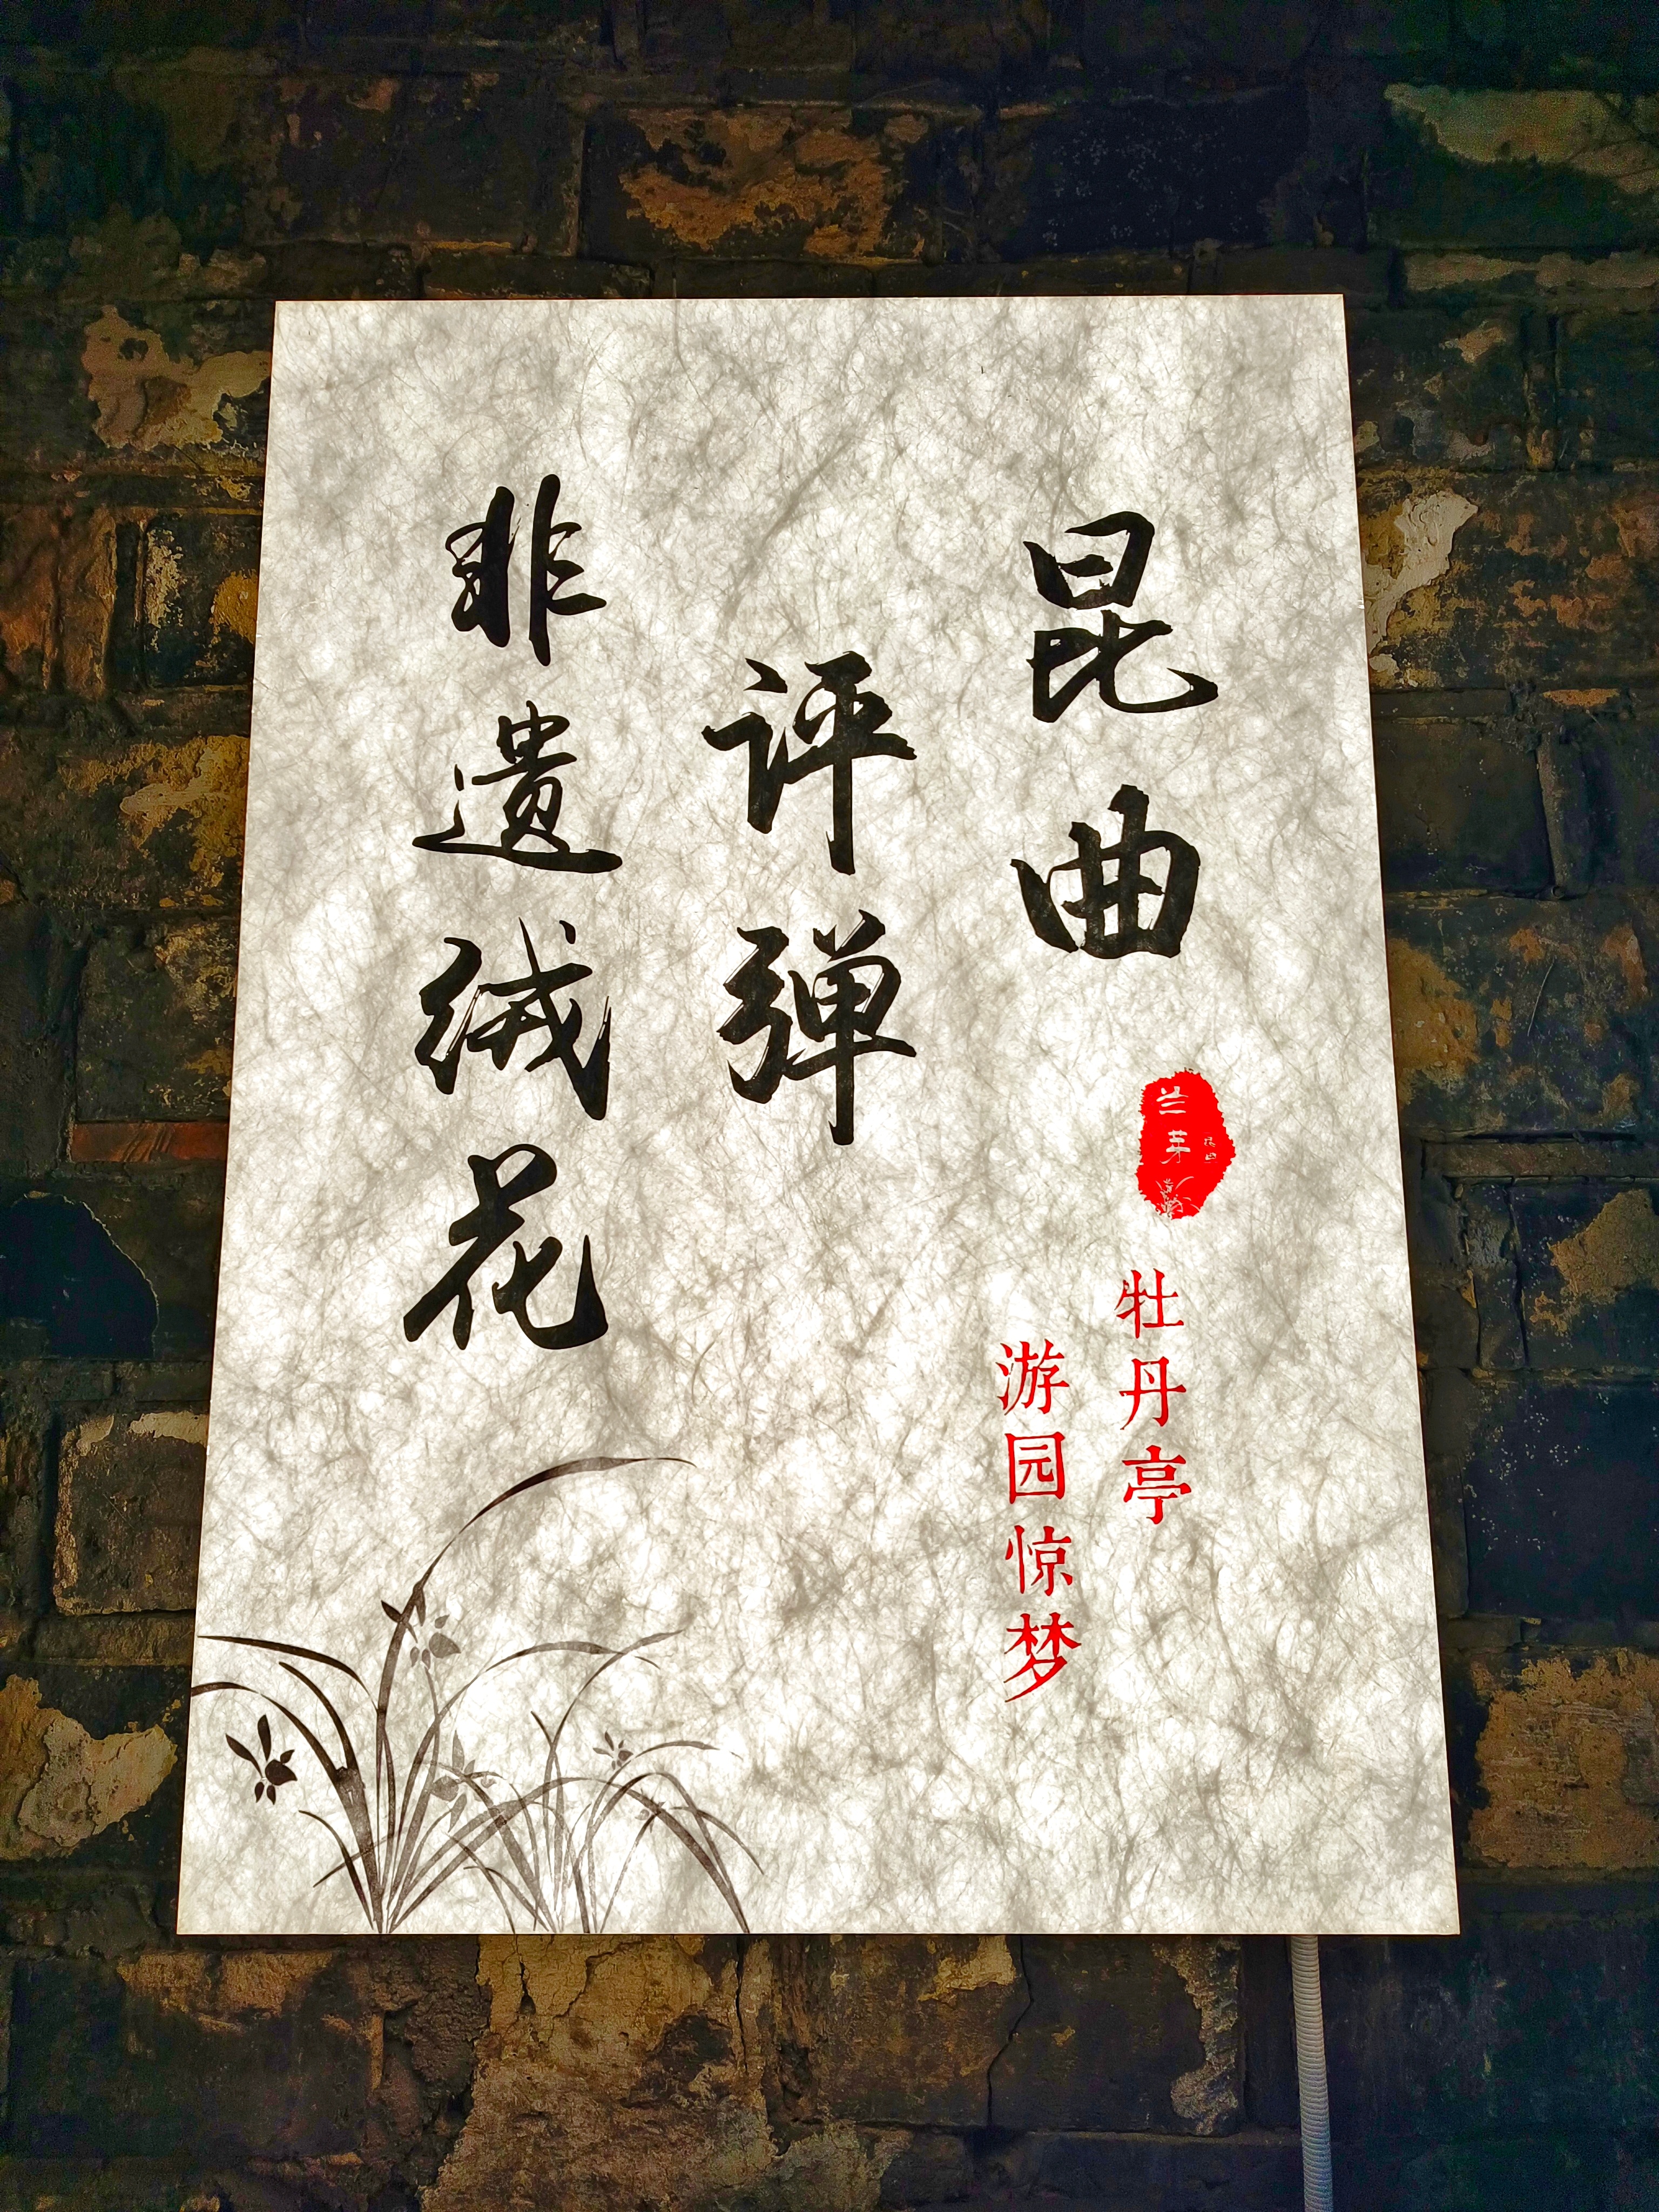 昆曲
兰芽
牡丹亭
游园惊梦
评弹
非遗绒花